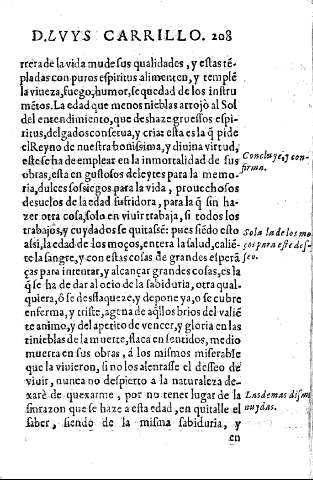 D. LVYS CARRILLO. 208
rrera de la vida mude sus qualidades, y estas tẽ-
pladas con puros espiritus alimenten, y templẽ
la viueza, fuego, humor, se quedad de los instru
mẽtos. La edad que menos nieblas arrojò al Sol
del entendimiento, que deshaze gruessos espi-
ritus, delgados conserua, y cria: esta es la q̃ pide
el Reyno de nuestra bonissima, y diuina virtud,
este se ha de emplear en la inmortalidad de sus
obras, esta en gustosos deleytes para la memo-
ria, dulces sossiegos para la vida, prouechosos
desuelos de la edad sufridora, para la q̃ sin ha-
zer otra cosa, solo en viuir trabaja, si todos los
trabajos, y cuydados se quitassẽ: pues siẽdo esto
assi, la edad de los moços, entera la salud, caliẽ-
te la sangre, y con estas cosas de grandes esperã
ças para intentar, y alcançar grandes cosas, es la
q̃ se ha de dar al ocio de la sabiduria, otra qual-
quiera, ò se desflaqueze, y depone ya, o se cubre
enferma, y triste, agena de aq̃llos brios del valiẽ
te animo, y del apetito de vencer, y gloria en las
tinieblas de la muerte, flaca en sentidos, medio
muerta en sus obras, á los mismos miserable
que la viuieron, si no los alentasse el desseo de
viuir, nunca no despierto a la naturaleza de-
xarè de quexarme, por no tener lugar de la
sinrazon que se haze a esta edad, en quitalle el
saber, siendo de la misma sabiduria, y
en
Concluye, y con-
firma.
Sola la de los mo
ços para este des-
seo.
Las demas dismi
nuydas.